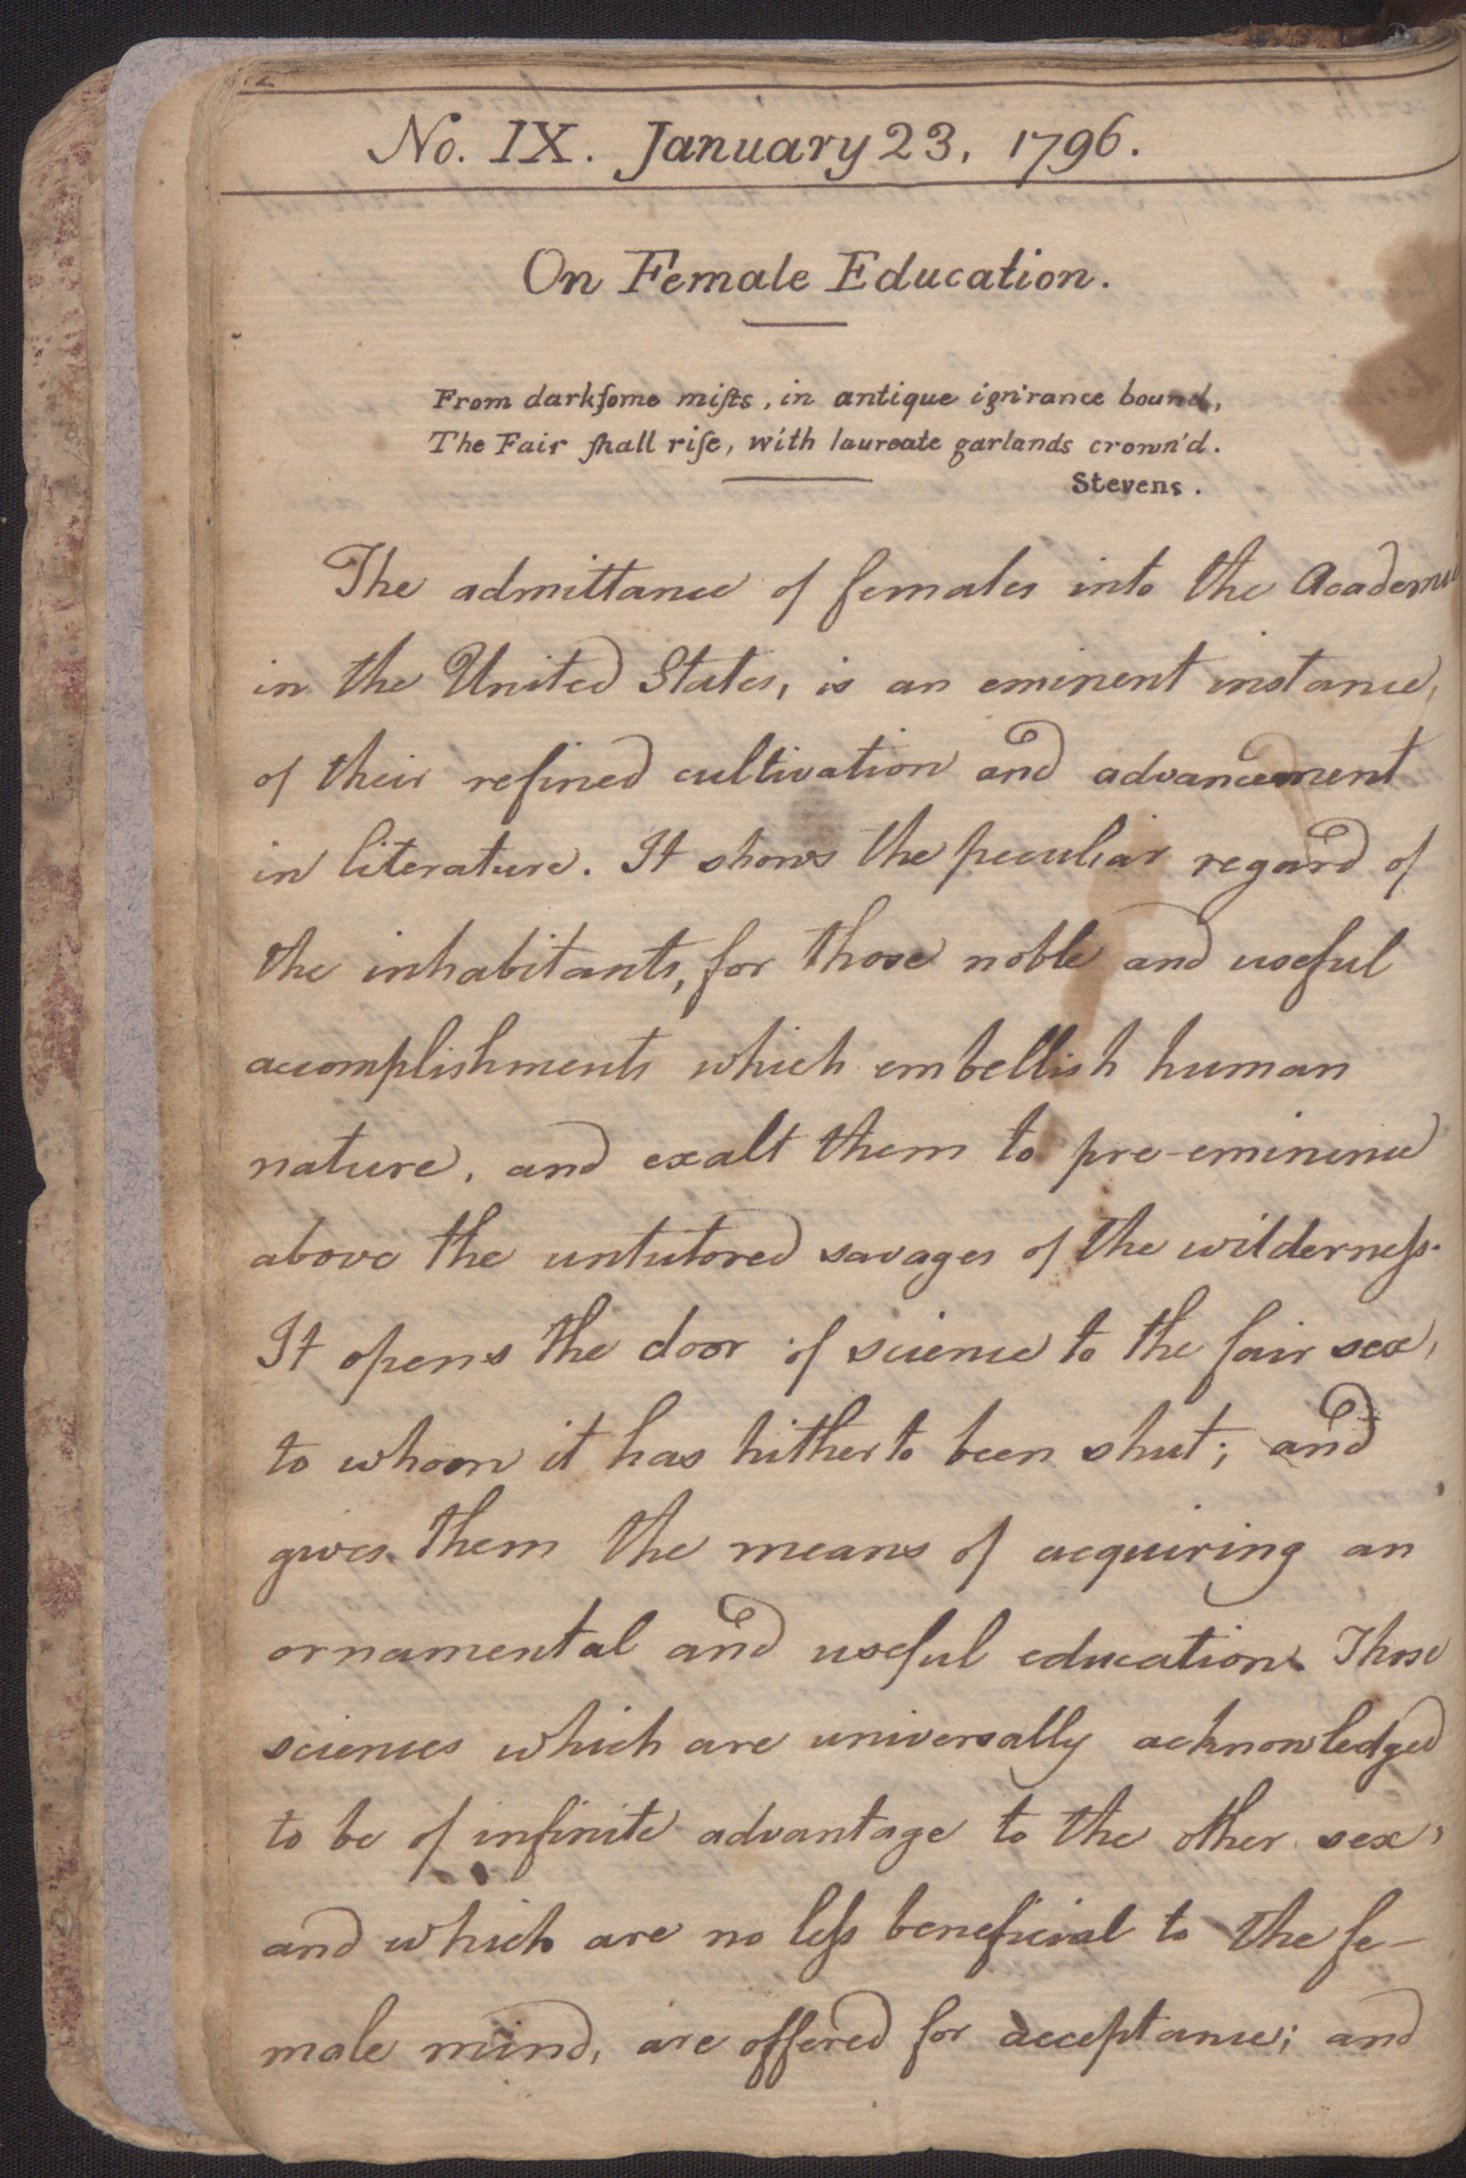 No. IX. January 23, 1796.
On Female Education.
From darkſome miſts, in antique ign'rance bound,
The Fair ſhall riſe, with laureate garlands crown'd.
Stevens.
The admittance of females into the
in the United States, is an eminent instance,
of their refined cultivation and advancement
in literature. It shows the peculiar regard of
the inhabitants, for those noble and useful
accomplishments which embellish human
nature, and exalt them to pre-eminence
above the untutored savages of the wilderneſs.
It opens the door of science to the fair sex,
to whom it has hitherto been shut; and
gives them the means of acquiring an
ornamental and useful education. Those
sciences which are universally acknowledged
to be of infinite advantage to the other sex,
and which are no leſs beneficial to the fe-
male mind, are offered for acceptance; and